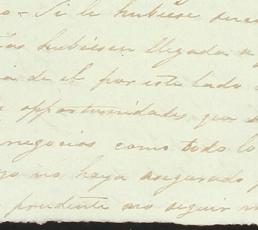 Si le hubiese
hubiesen llegado a
de el por este lado
opportunidades que
negocios como todo lo
no haya asegurado
prudente no seguir